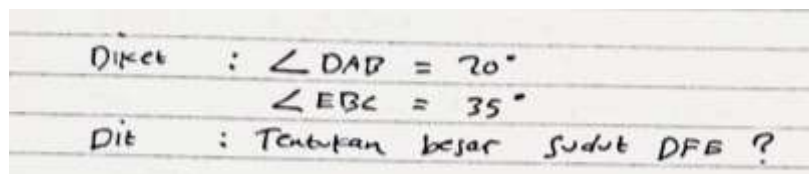 Diket : ∠ DAB = 70°
∠ EBC = 35°
Dit : Tentukan besar sudut DFE ?